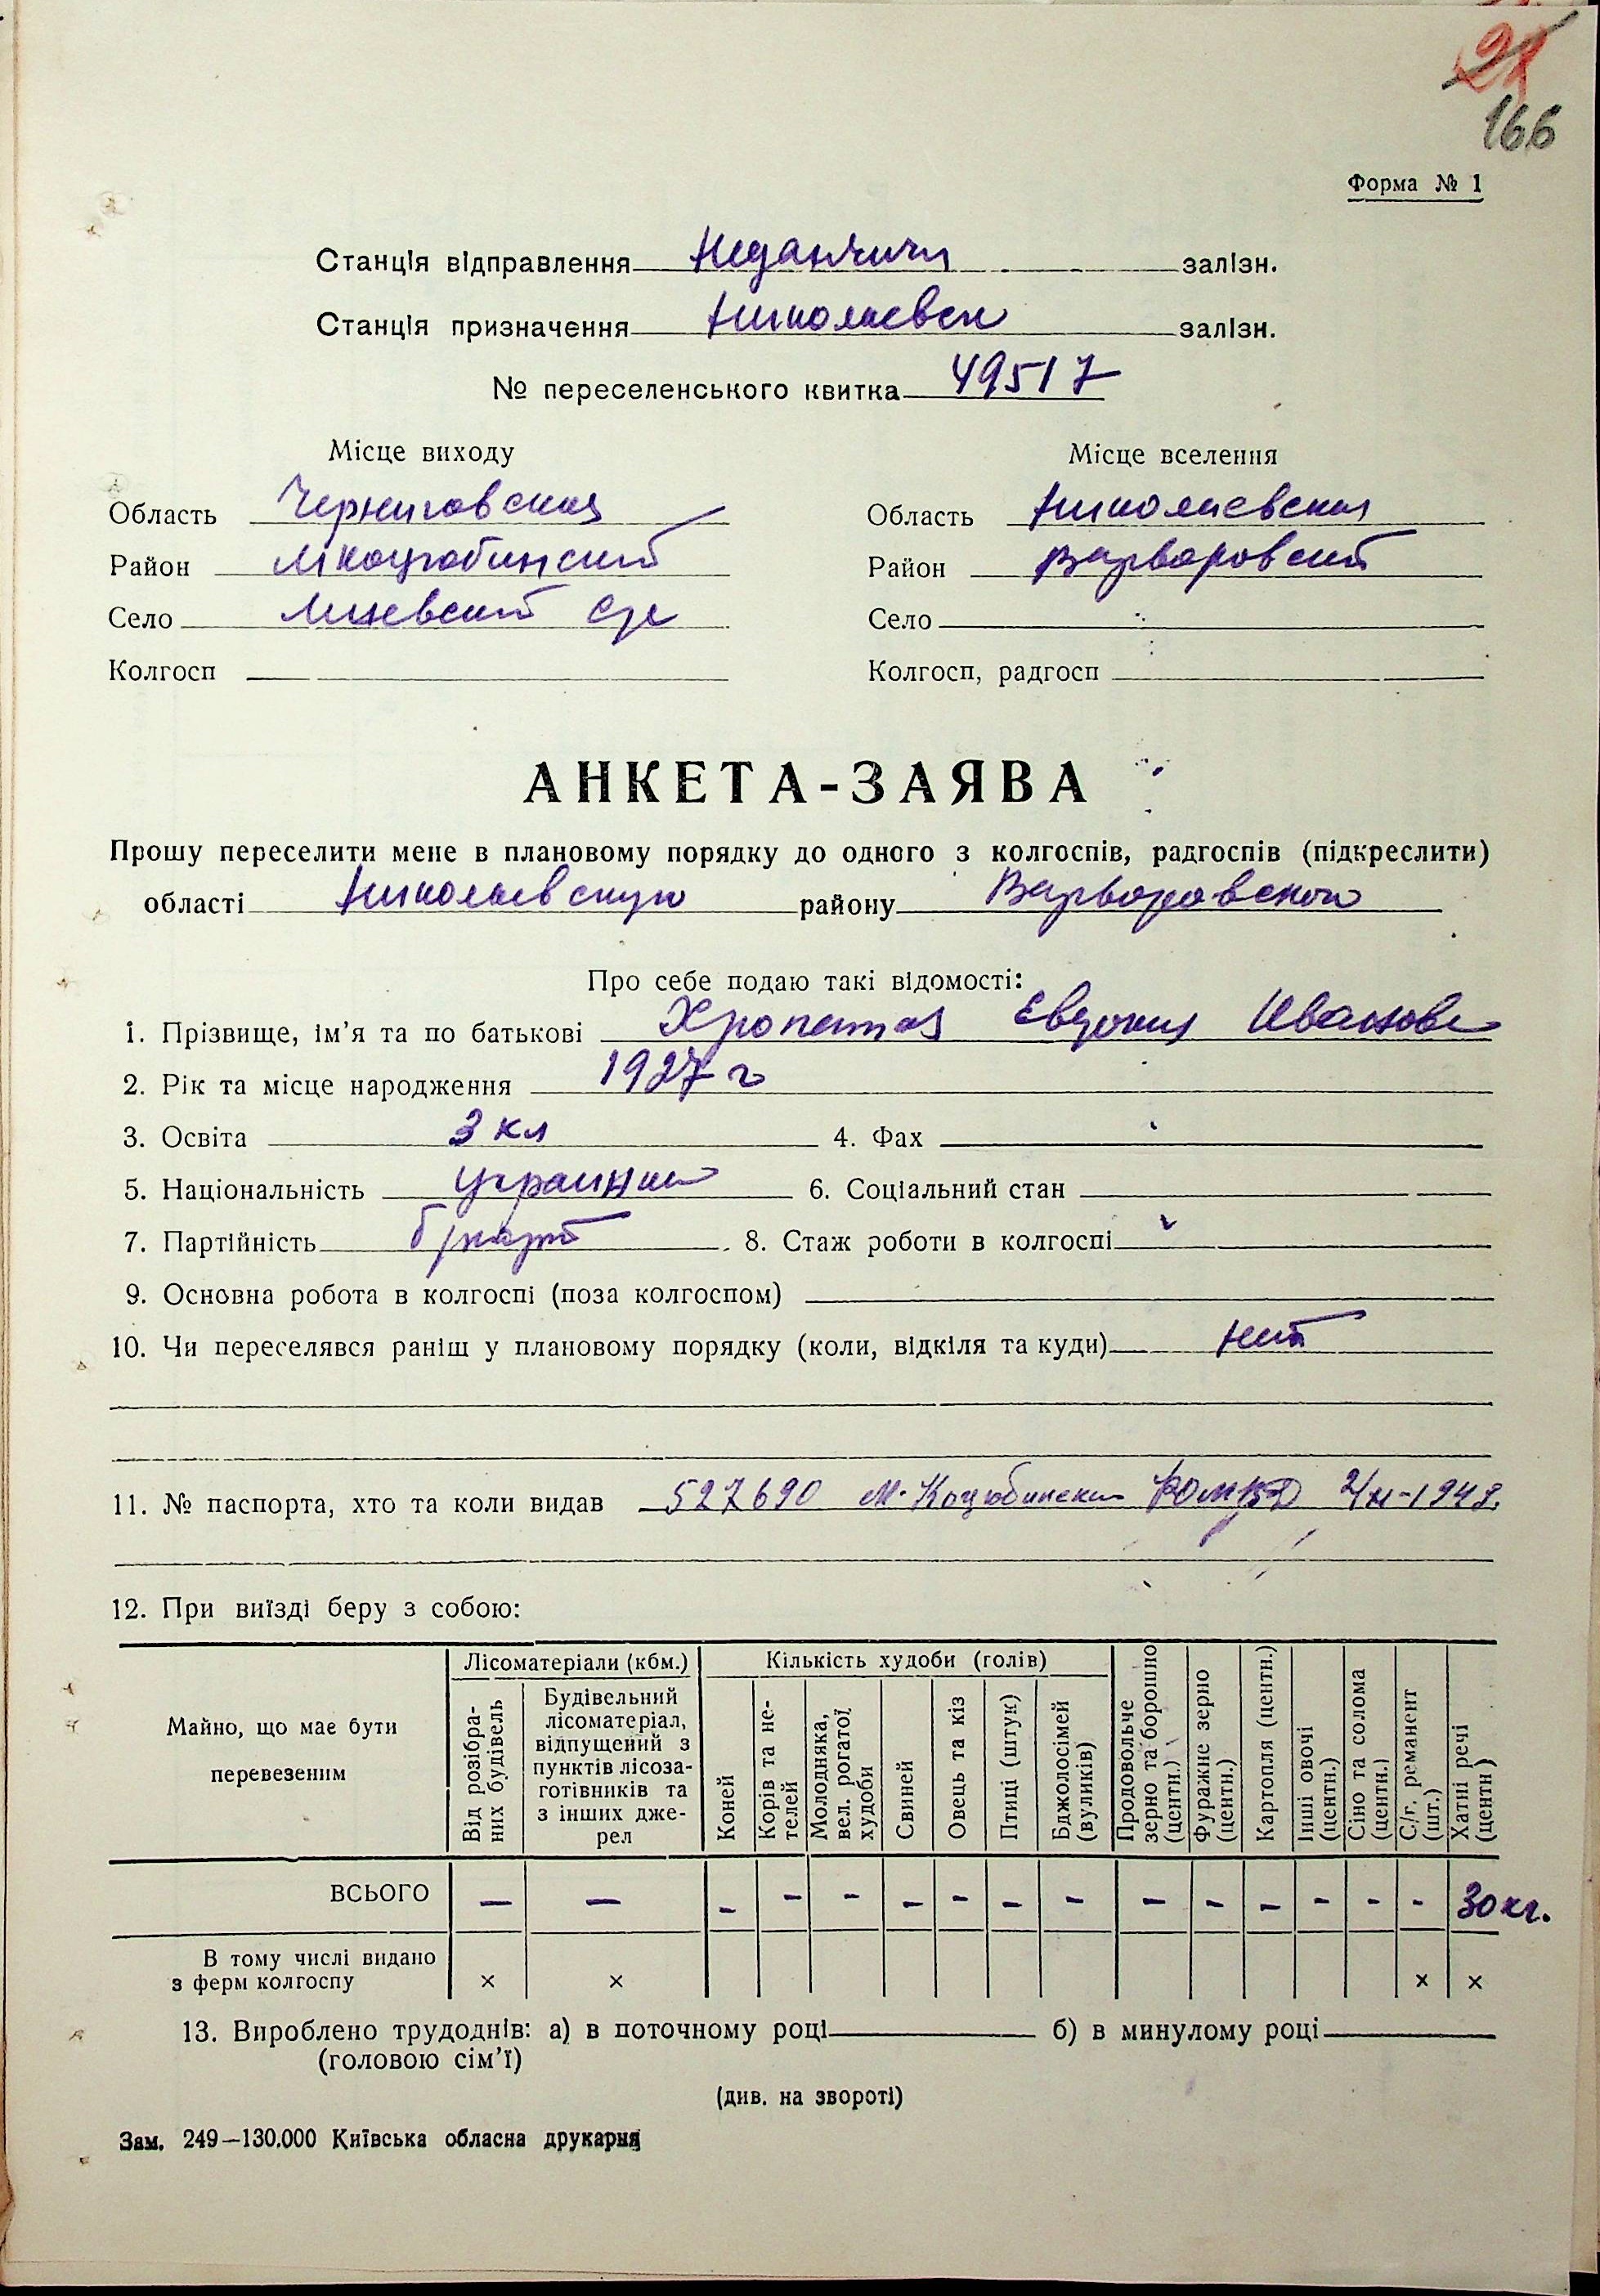 21
166
Форма № 1
Станція відправлення Неданчичи залізн.
Станція призначення Николаевск залізн.
№ переселенського квитка 49517
Місце виходу Місце вселення
Область Черниговская Область Николаевская
Район Мкоцюбинский Район Варваровский
Село с/с Село
Колгосп Колгосп, радгосп
АНКЕТА-ЗАЯВА
Прошу переселити мене в плановому порядку до одного з колгоспів, радгоспів (підкреслити)
області Николаевскую району Варваровского
Про себе подаю такі відомості:
1. Прізвище, ім'я та по батькові Евдокия Иванов
2. Рік та місце народження 1927 г
3. Освіта 3 кл 4. Фах
5. Національність украинка 6. Соціальний стан
7. Партійність б/парт 8. Стаж роботи в колгоспі
9. Основна робота в колгоспі (поза колгоспом)
10. Чи переселявся раніш у плановому порядку (коли, відкіля та куди) нет
11. № паспорта, хто та коли видав 527690 М-Коцюбинским РОМВД
12. При виїзді беру з собою:
Майно, що має бути перевезеним
Лісоматеріали (кбм.)
Від розібраних будівель
Будівельний лісоматеріал, відпущений з пунктів лісозаготівників та з інших джерел
Кількість худоби (голів)
Коней
Корів та нетелей
Молодняка, вел. рогатої худоби
Свиней
Овець та кіз
Птиці (штук)
Бджолосімей (вуликів)
Продовольче зерно та борошно (центн.)
Фуражне зерно (центн.)
Картопля (центн.)
Інші овочі (центн.)
Сіно та солома (центн.)
С/г. реманент (шт.)
Хатні речі (центн)
ВСЬОГО — — - - - - - - - - - - - - - 30 кг.
В тому числі видано
з ферм колгоспу × × × ×
13. Вироблено трудоднів: а) в поточному році б) в минулому році
(головою сім'ї)
(див. на звороті)
Зам. 249—130.000 Київська обласна друкарня